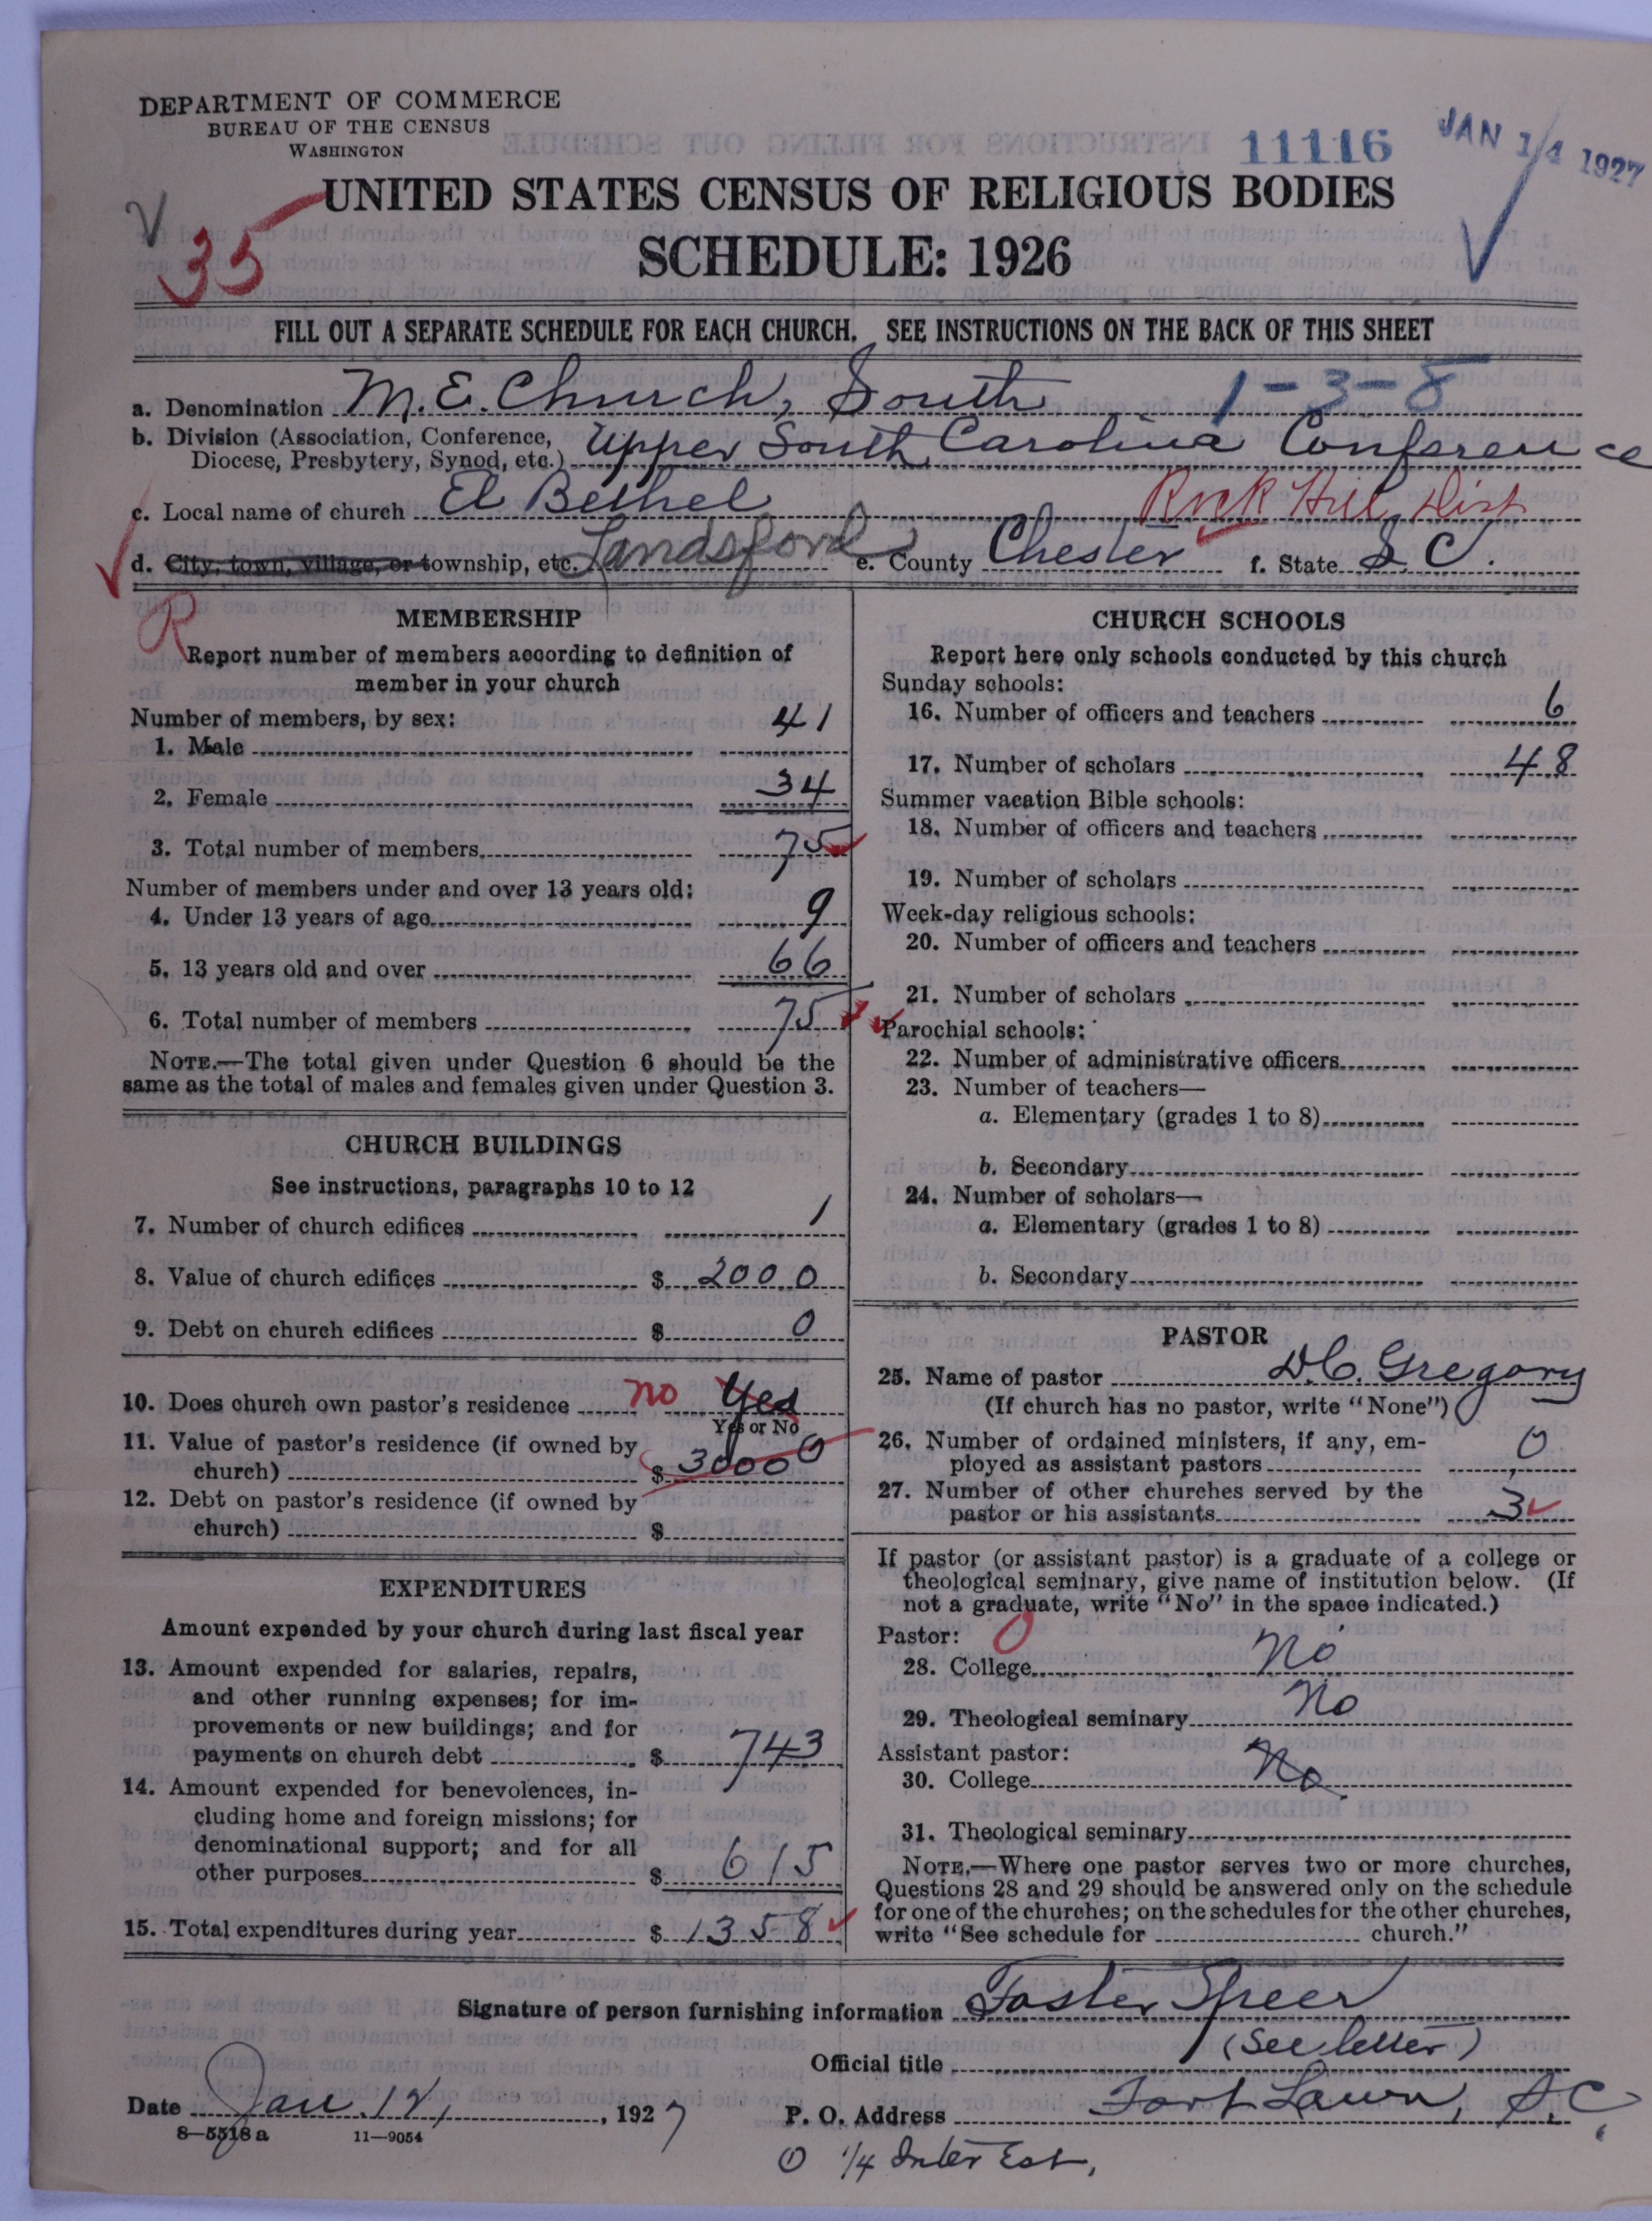 DEPARTMENT OF COMMERCE
BUREAU OF THE CENSUS
WASHINGTON
11116
JAN 14 1927
35
UNITED STATES CENSUS OF RELIGIOUS BODIES
SCHEDULE: 1926
FILL OUT A SEPARATE SCHEDULE FOR EACH CHURCH. SEE INSTRUCTIONS ON THE BACK OF THIS SHEET
a. Denomination M.E. Church, South 1-3-8
b. Division (Association, Conference, Diocese, Presbytery, Synod, etc.) Upper South Carolina Conference
c. Local name of church El Bethel Rock Hill Dist
d. City, town, village, or township, etc. Landsford e. County Chester f. State S.C.
R
MEMBERSHIP
Report number of members according to definition of
member in your church
Number of members, by sex:
1. Male 41
2. Female 34
3. Total number of members 75
Number of members under and over 13 years old:
4. Under 13 years of age 9
5. 13 years old and over 66
6. Total number of members 75
NOTE.—The total given under Question 6 should be the
same as the total of males and females given under Question 3.
CHURCH BUILDINGS
See instructions, paragraphs 10 to 12
7. Number of church edifices 1
8. Value of church edifices $ 2000
9. Debt on church edifices $ 0
10. Does church own pastor's residence no Yes
Yes or No
11. Value of pastor's residence (if owned by
church) $ 3000 0
12. Debt on pastor's residence (if owned by
church) $
EXPENDITURES
Amount expended by your church during last fiscal year
13. Amount expended for salaries, repairs,
and other running expenses; for im-
provements or new buildings; and for
payments on church debt $ 743
14. Amount expended for benevolences, in-
cluding home and foreign missions; for
denominational support; and for all
other purposes $ 615
15. Total expenditures during year $ 1358
CHURCH SCHOOLS
Report here only schools conducted by this church
Sunday schools:
16. Number of officers and teachers 6
17. Number of scholars 48
Summer vacation Bible schools:
18. Number of officers and teachers
19. Number of scholars
Week-day religious schools:
20. Number of officers and teachers
21. Number of scholars
Parochial schools:
22. Number of administrative officers
23. Number of teachers—
a. Elementary (grades 1 to 8)
b. Secondary
24. Number of scholars—
a. Elementary (grades 1 to 8)
b. Secondary
PASTOR
25. Name of pastor D.C. Gregory
(If church has no pastor, write "None")
26. Number of ordained ministers, if any, em-
ployed as assistant pastors 0
27. Number of other churches served by the
pastor or his assistants 3
If pastor (or assistant pastor) is a graduate of a college or
theological seminary, give name of institution below. (If
not a graduate, write "No" in the space indicated.)
Pastor: 0
28. College No
29. Theological seminary No
Assistant pastor:
30. College No
31. Theological seminary
NOTE.—Where one pastor serves two or more churches,
Questions 28 and 29 should be answered only on the schedule
for one of the churches; on the schedules for the other churches,
write "See schedule for church."
Signature of person furnishing information Foster Speer
Official title (See letter)
Date Jan. 12, 1927 P. O. Address Fort Lawn, S.C.
8—5518 a 11—9054
0 1/4 Interest,